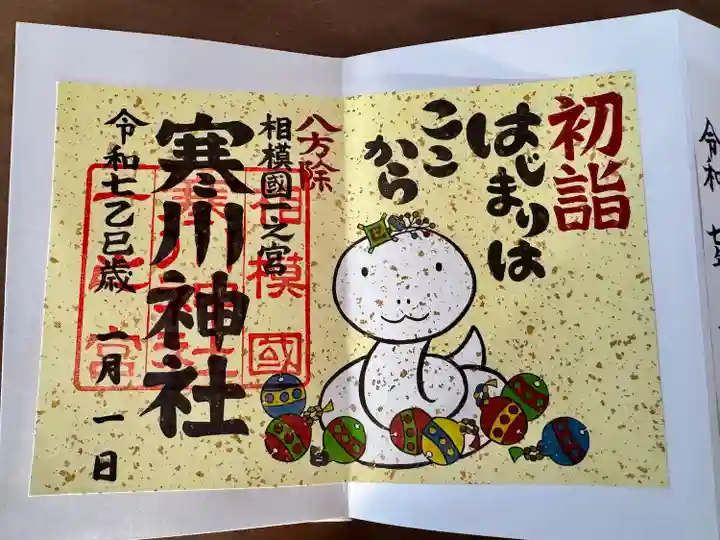 初詣
はじまりは
ここ
から
八方除
相模國一之宮
寒川神社
令和七乙巳歳 一月一日
相模國
一之宮
令和